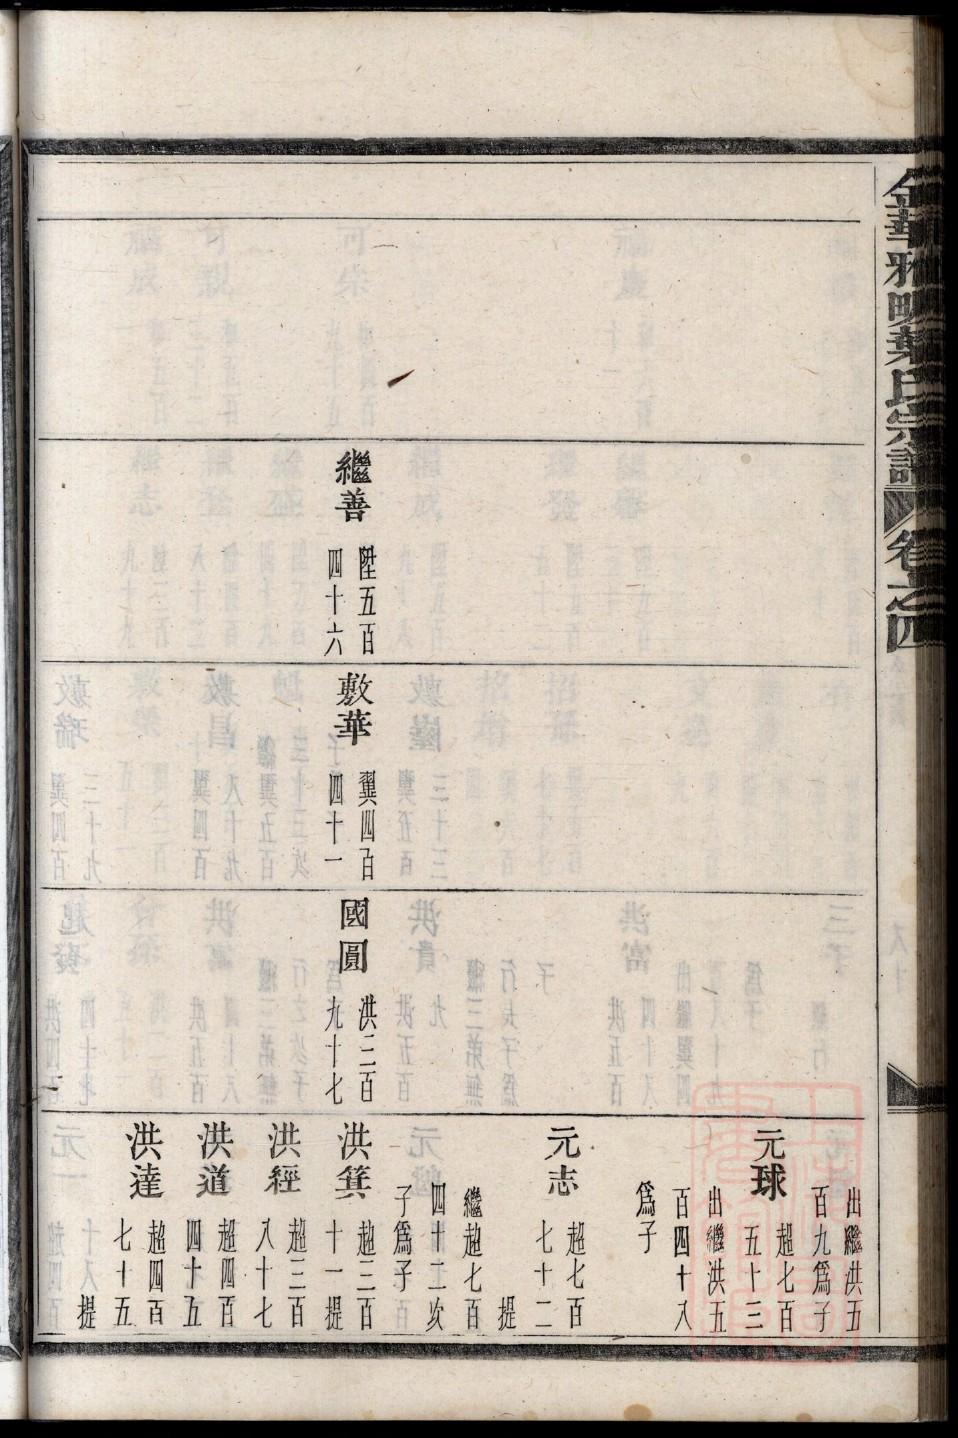 金華雅畈葉氏宗譜
卷之四
繼善
陞五百
四十六
敷華
翼四百
四十一
國圓
洪三百
九十七
出繼洪五
百九爲子
元球
超七百
五十三
出繼洪五
百四十八
爲子
元志
超七百
七十二
提
繼超七百
四十二次
子爲子
洪箕
超三百
十一
提
洪經
超三百
八十七
洪道
超四百
四十五
洪達
超四百
七十五
提